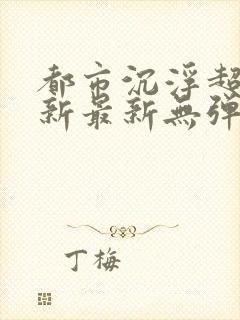 都市沉浮超
新最新無彈
丁梅